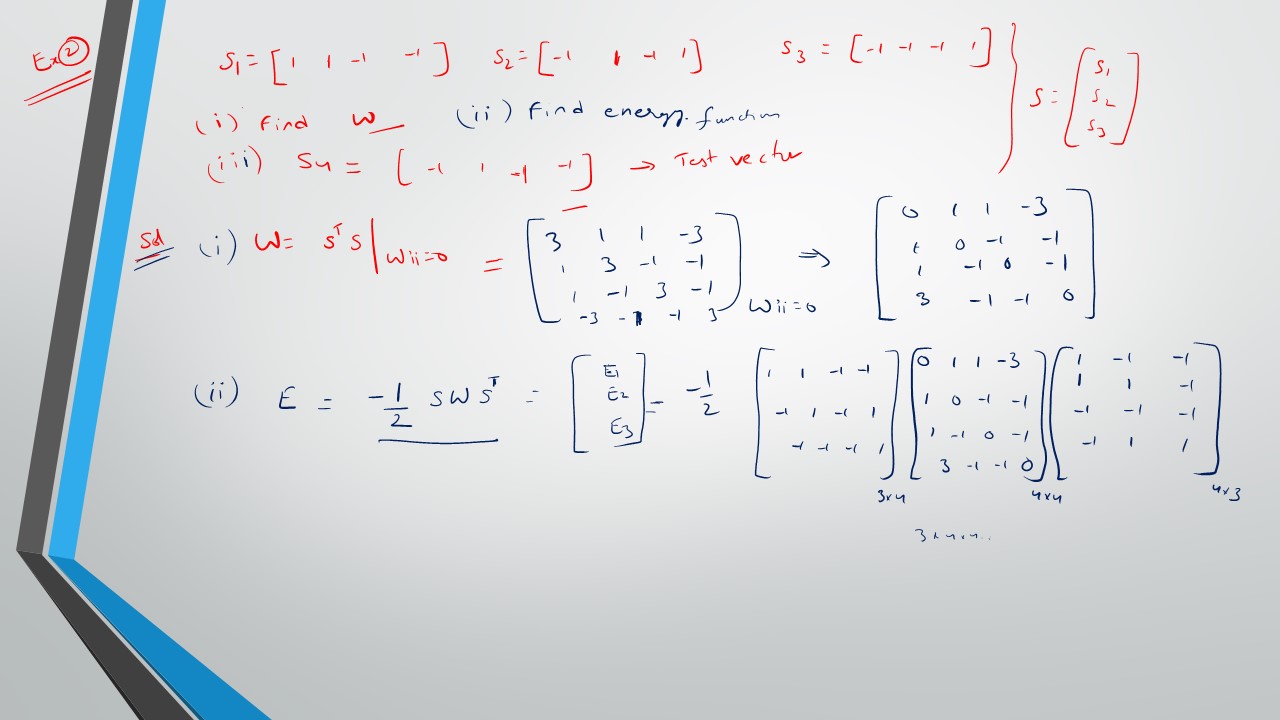 Ex ②
S1 = [ 1 1 -1 -1 ] S2 = [ -1 1 -1 1 ] S3 = [ -1 -1 -1 1 ] } S = [ S1 S2 S3 ]
(i) Find W (ii) Find energy function
(iii) S4 = [ -1 1 -1 -1 ] → Test vector
Sol (i) W = S^T S | Wii=0 = [ 3 1 1 -3
1 3 -1 -1
1 -1 3 -1
-3 -1 -1 3 ] Wii=0 ⇒ [ 0 1 1 -3
1 0 -1 -1
1 -1 0 -1
3 -1 -1 0 ]
(ii) E = -1/2 S W S^T = [ E1 E2 E3 ] = -1/2 [ 1 1 -1 -1
-1 1 -1 1
-1 -1 -1 1 ] 3x4 [ 0 1 1 -3
1 0 -1 -1
1 -1 0 -1
3 -1 -1 0 ] 4x4 [ 1 -1 -1
1 1 -1
-1 -1 -1
-1 1 1 ] 4x3
3x4x4..